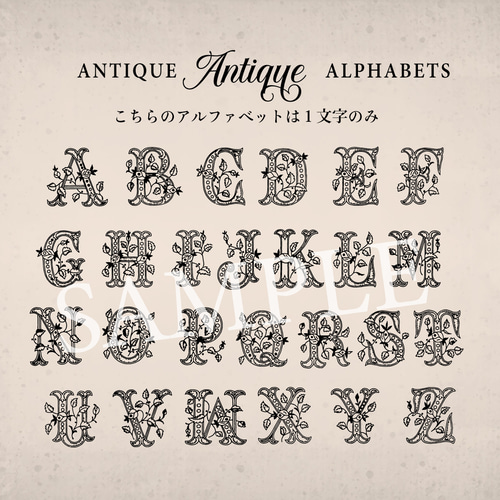 ANTIQUE Antique ALPHABETS
こちらのアルファベットは1文字のみ
A B C D E F
G H I J K L M
N O P Q R S T
U V W X Y Z
SAMPLE